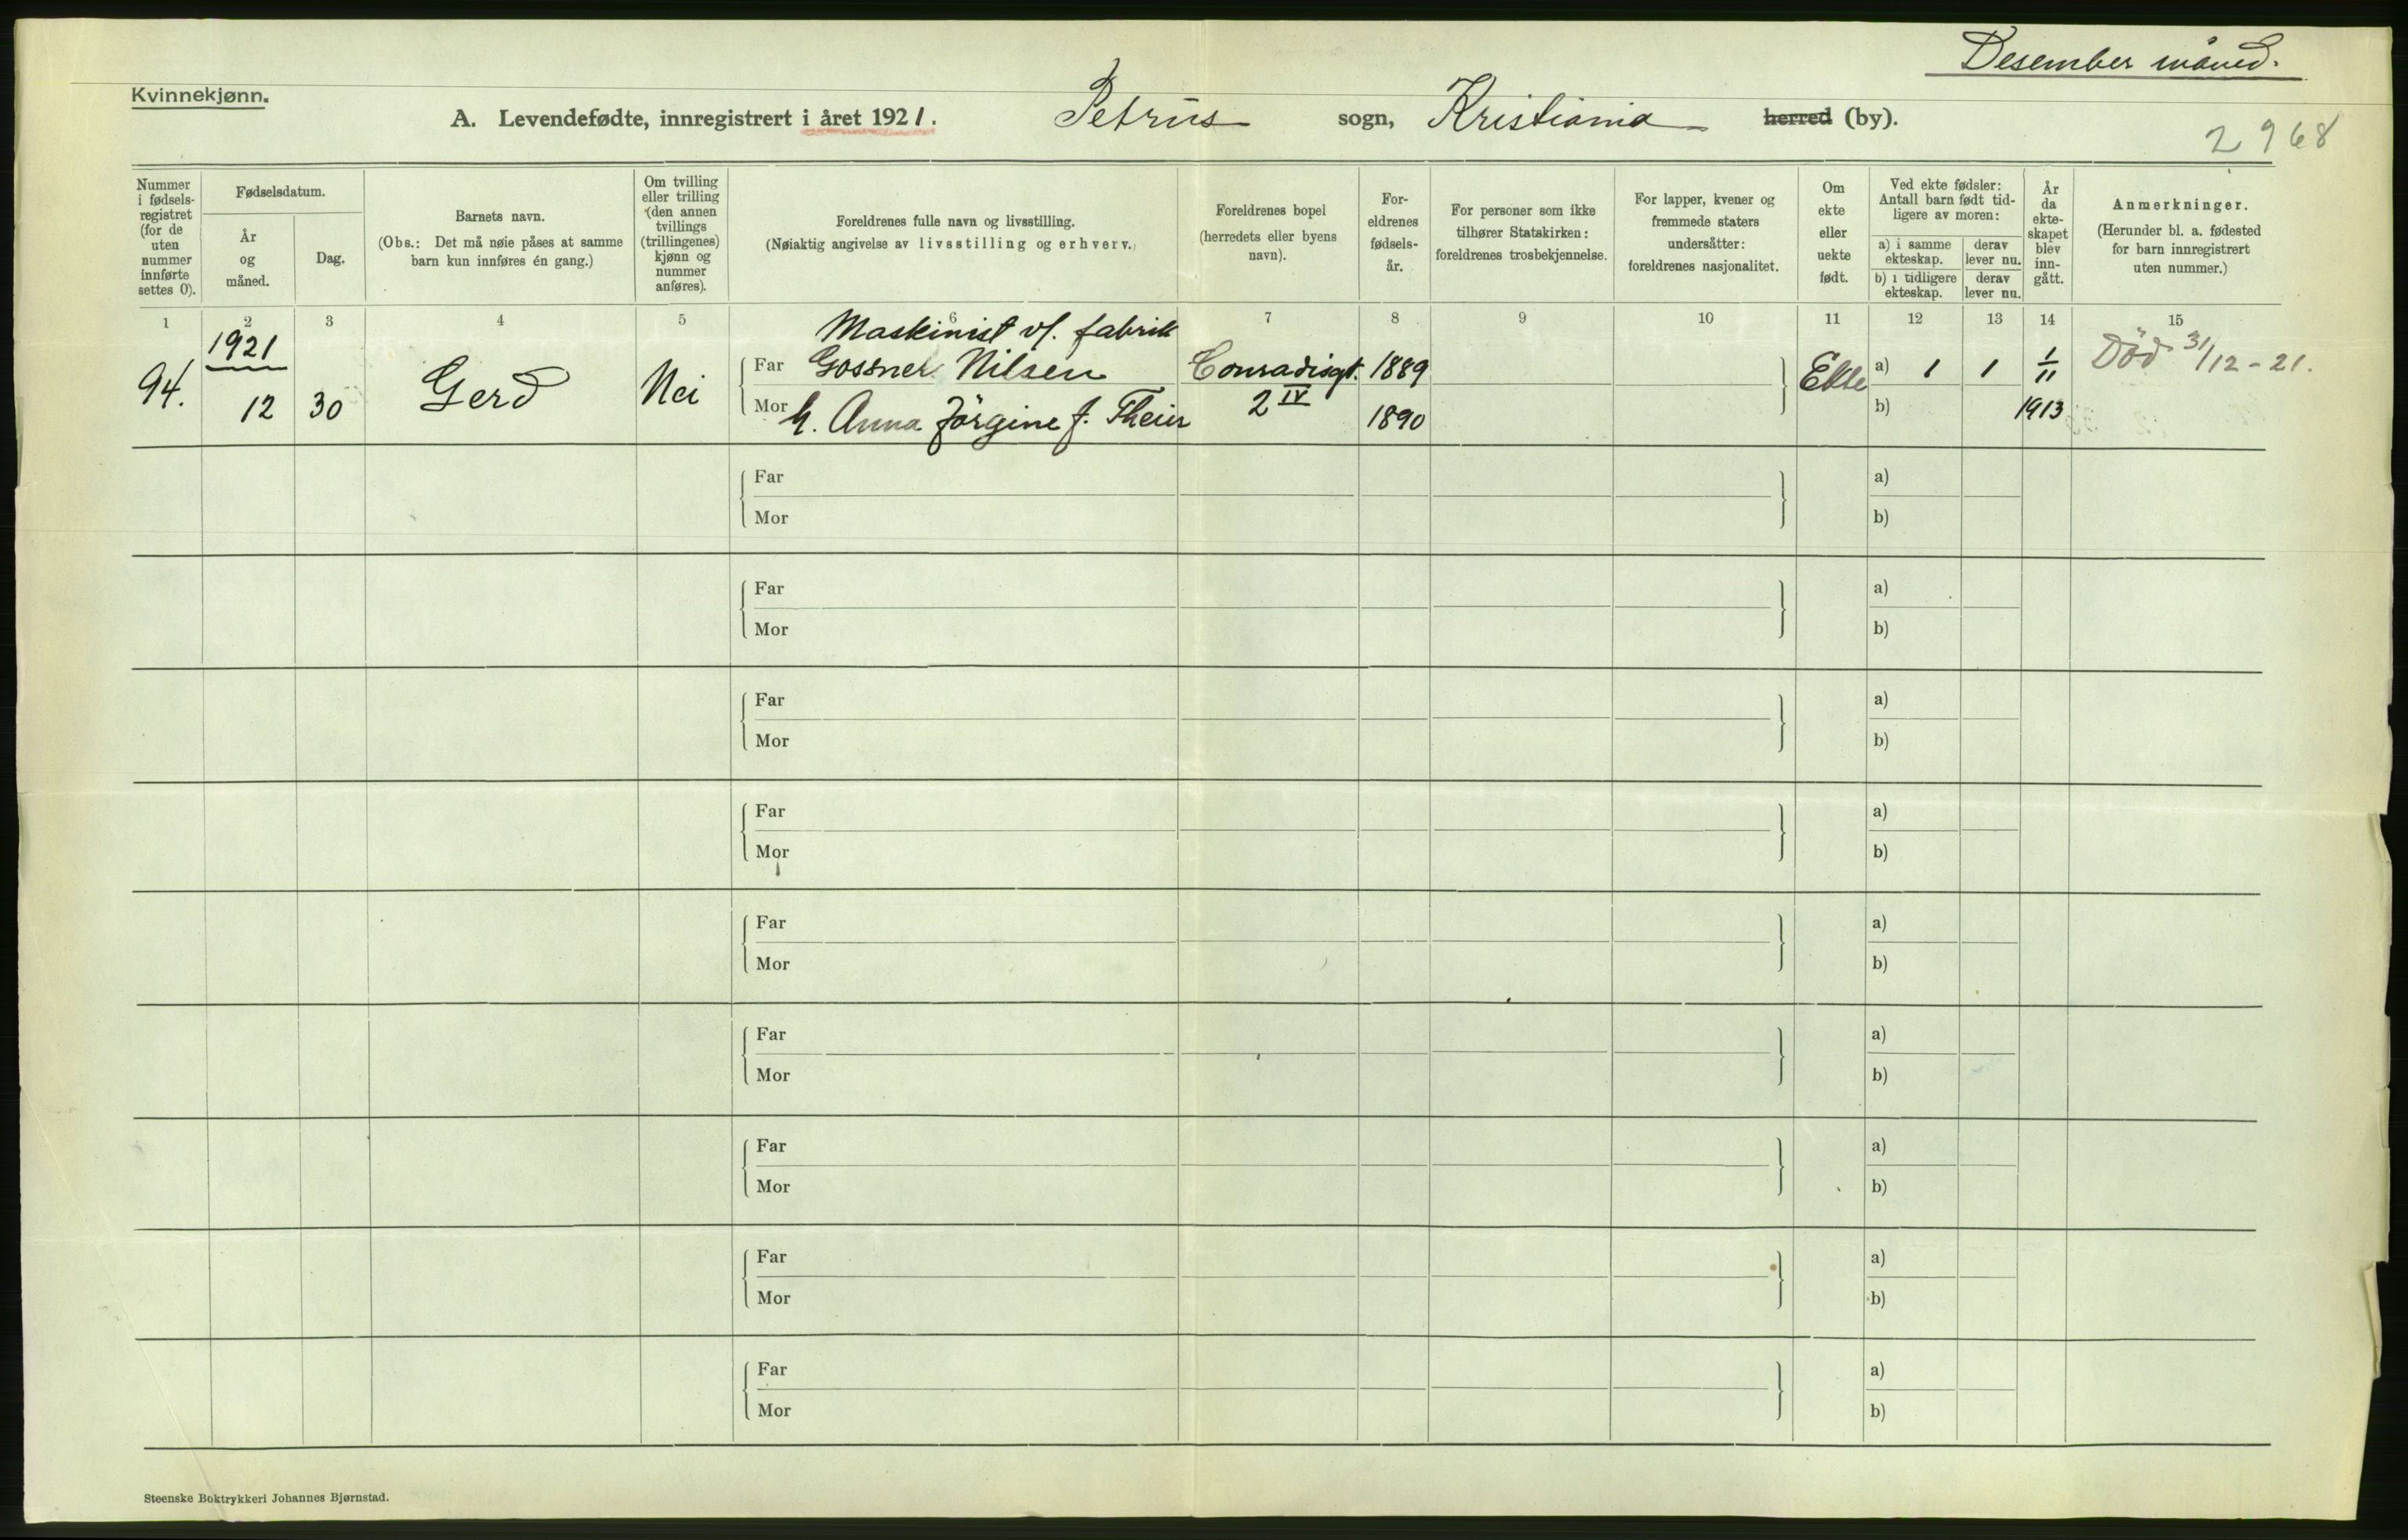 Desember måned.
Kvinnekjønn.
A. Levendefødte, innregistrert i året 1921. Petrus sogn, Kristiania herred (by).
2968
Nummer i fødsels-registret (for de uten nummer innførte settes 0).
Fødselsdatum.
År og måned.
Dag.
Barnets navn.
(Obs.: Det må nøie påses at samme barn kun innføres én gang.)
Om tvilling eller trilling (den annen tvillings (trillingenes) kjønn og nummer anføres).
Foreldrenes fulle navn og livsstilling.
(Nøiaktig angivelse av livsstilling og erhverv.)
Foreldrenes bopel (herredets eller byens navn).
For-eldrenes fødsels-år.
For personer som ikke tilhører Statskirken: foreldrenes trosbekjennelse.
For lapper, kvener og fremmede staters undersåtter: foreldrenes nasjonalitet.
Om ekte eller uekte født.
Ved ekte fødsler: Antall barn født tid-ligere av moren:
a) i samme ekteskap.
derav lever nu.
b) i tidligere ekteskap.
derav lever nu.
År da ekte-skapet blev inn-gått.
Anmerkninger.
(Herunder bl. a. fødested for barn innregistrert uten nummer.)
1 2 3 4 5 6 7 8 9 10 11 12 13 14 15
1921
Maskinist v/. fabrik
94. 12 30 Gerd Nei
Far Gossner Nilsen Conradisgt. 1889 Ekte a) 1 1 1/11 Död 31/12-21.
Mor h. Anna Jörgine f. Thein 2 IV 1890 b) 1913
Far a)
Mor b)
Far a)
Mor b)
Far a)
Mor b)
Far a)
Mor b)
Far a)
Mor b)
Far a)
Mor b)
Far a)
Mor b)
Far a)
Mor b)
Far a)
Mor b)
Steenske Boktrykkeri Johannes Bjørnstad.